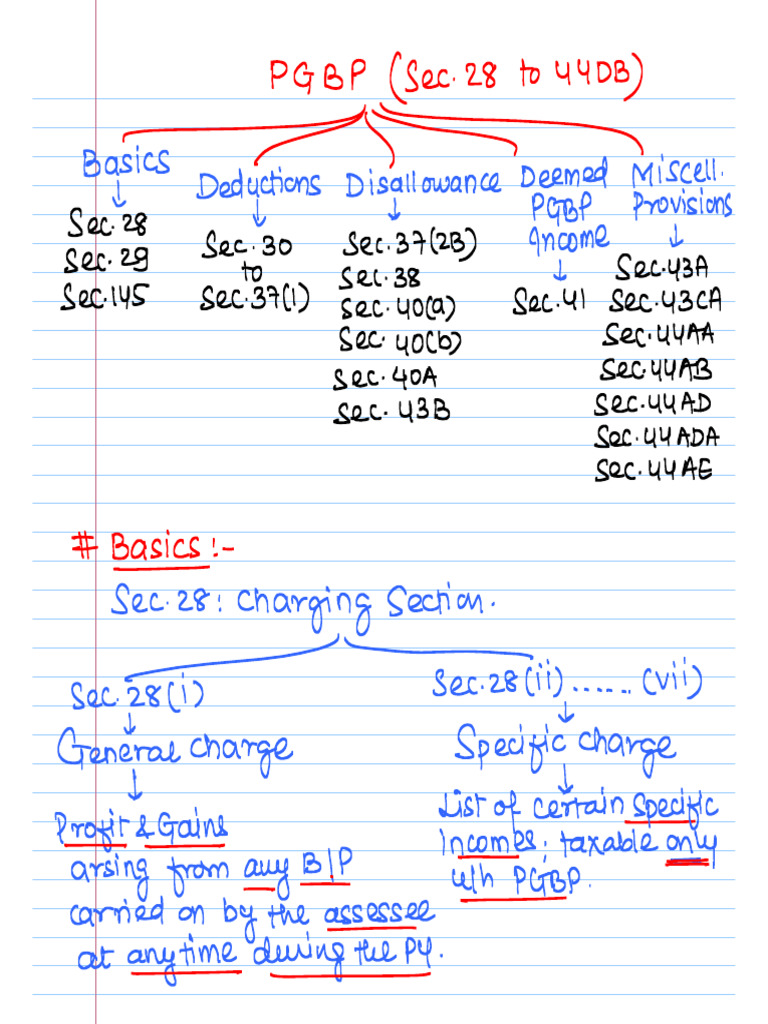 PGBP (Sec. 28 to 44DB)
Basics
Sec. 28
Sec. 29
Sec. 145
Deductions
Sec. 30
to
Sec. 37(1)
Disallowance
Sec. 37(2B)
Sec. 38
Sec. 40(a)
Sec. 40(b)
Sec. 40A
Sec. 43B
Deemed
PGBP
Income
Sec. 41
Miscell.
Provisions
Sec. 43A
Sec. 43CA
Sec. 44AA
Sec. 44AB
Sec. 44AD
Sec. 44ADA
Sec. 44AE
# Basics :-
Sec. 28 : Charging Section.
Sec. 28(i)
General charge
Profit & Gains
arsing from any B/P
carried on by the assessee
at anytime during the PY.
Sec. 28(ii) ...... (vii)
Specific charge
List of certain specific
Incomes; taxable only
u/h PGBP.